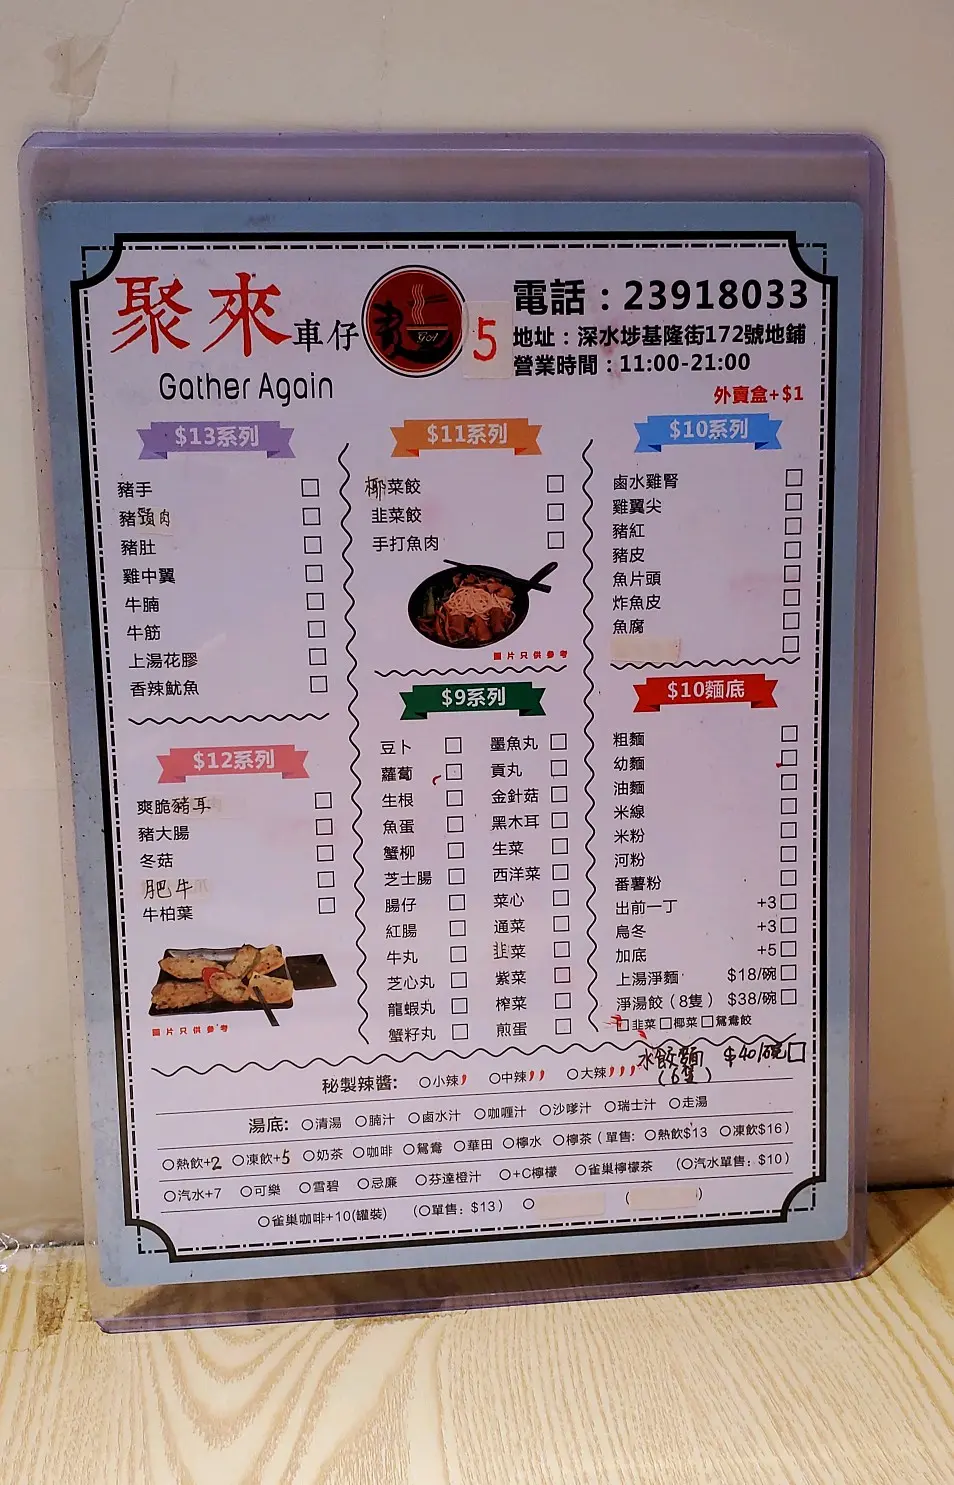 聚來車仔麵
go!
5
Gather Again
電話：23918033
地址：深水埗基隆街172號地鋪
營業時間：11:00-21:00
外賣盒+$1
$13系列
豬手
豬頸肉
豬肚
雞中翼
牛腩
牛筋
上湯花膠
香辣魷魚
$12系列
爽脆豬耳
豬大腸
冬菇
肥牛
牛柏葉
圖片只供參考
$11系列
椰菜餃
韭菜餃
手打魚肉
圖片只供參考
$9系列
豆卜
蘿蔔
生根
魚蛋
蟹柳
芝士腸
腸仔
紅腸
牛丸
芝心丸
龍蝦丸
蟹籽丸
墨魚丸
貢丸
金針菇
黑木耳
生菜
西洋菜
菜心
通菜
韭菜
紫菜
榨菜
煎蛋
$10系列
鹵水雞腎
雞翼尖
豬紅
豬皮
魚片頭
炸魚皮
魚腐
$10麵底
粗麵
幼麵
油麵
米線
米粉
河粉
番薯粉
出前一丁 +3
烏冬 +3
加底 +5
上湯淨麵 $18/碗
淨湯餃（8隻） $38/碗
韭菜 椰菜 鴛鴦餃
水餃麵 $40/碗
(6隻)
秘製辣醬: 小辣 中辣 大辣
湯底: 清湯 腩汁 鹵水汁 咖喱汁 沙嗲汁 瑞士汁 走湯
熱飲+2 凍飲+5 奶茶 咖啡 鴛鴦 華田 檸水 檸茶 (單售: 熱飲$13 凍飲$16)
汽水+7 可樂 雪碧 忌廉 芬達橙汁 +C檸檬 雀巢檸檬茶 (汽水單售: $10)
雀巢咖啡+10(罐裝) (單售: $13) ( )